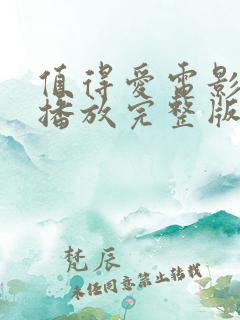 值得爱电影
播放完整版
梵辰
未经同意禁止转载